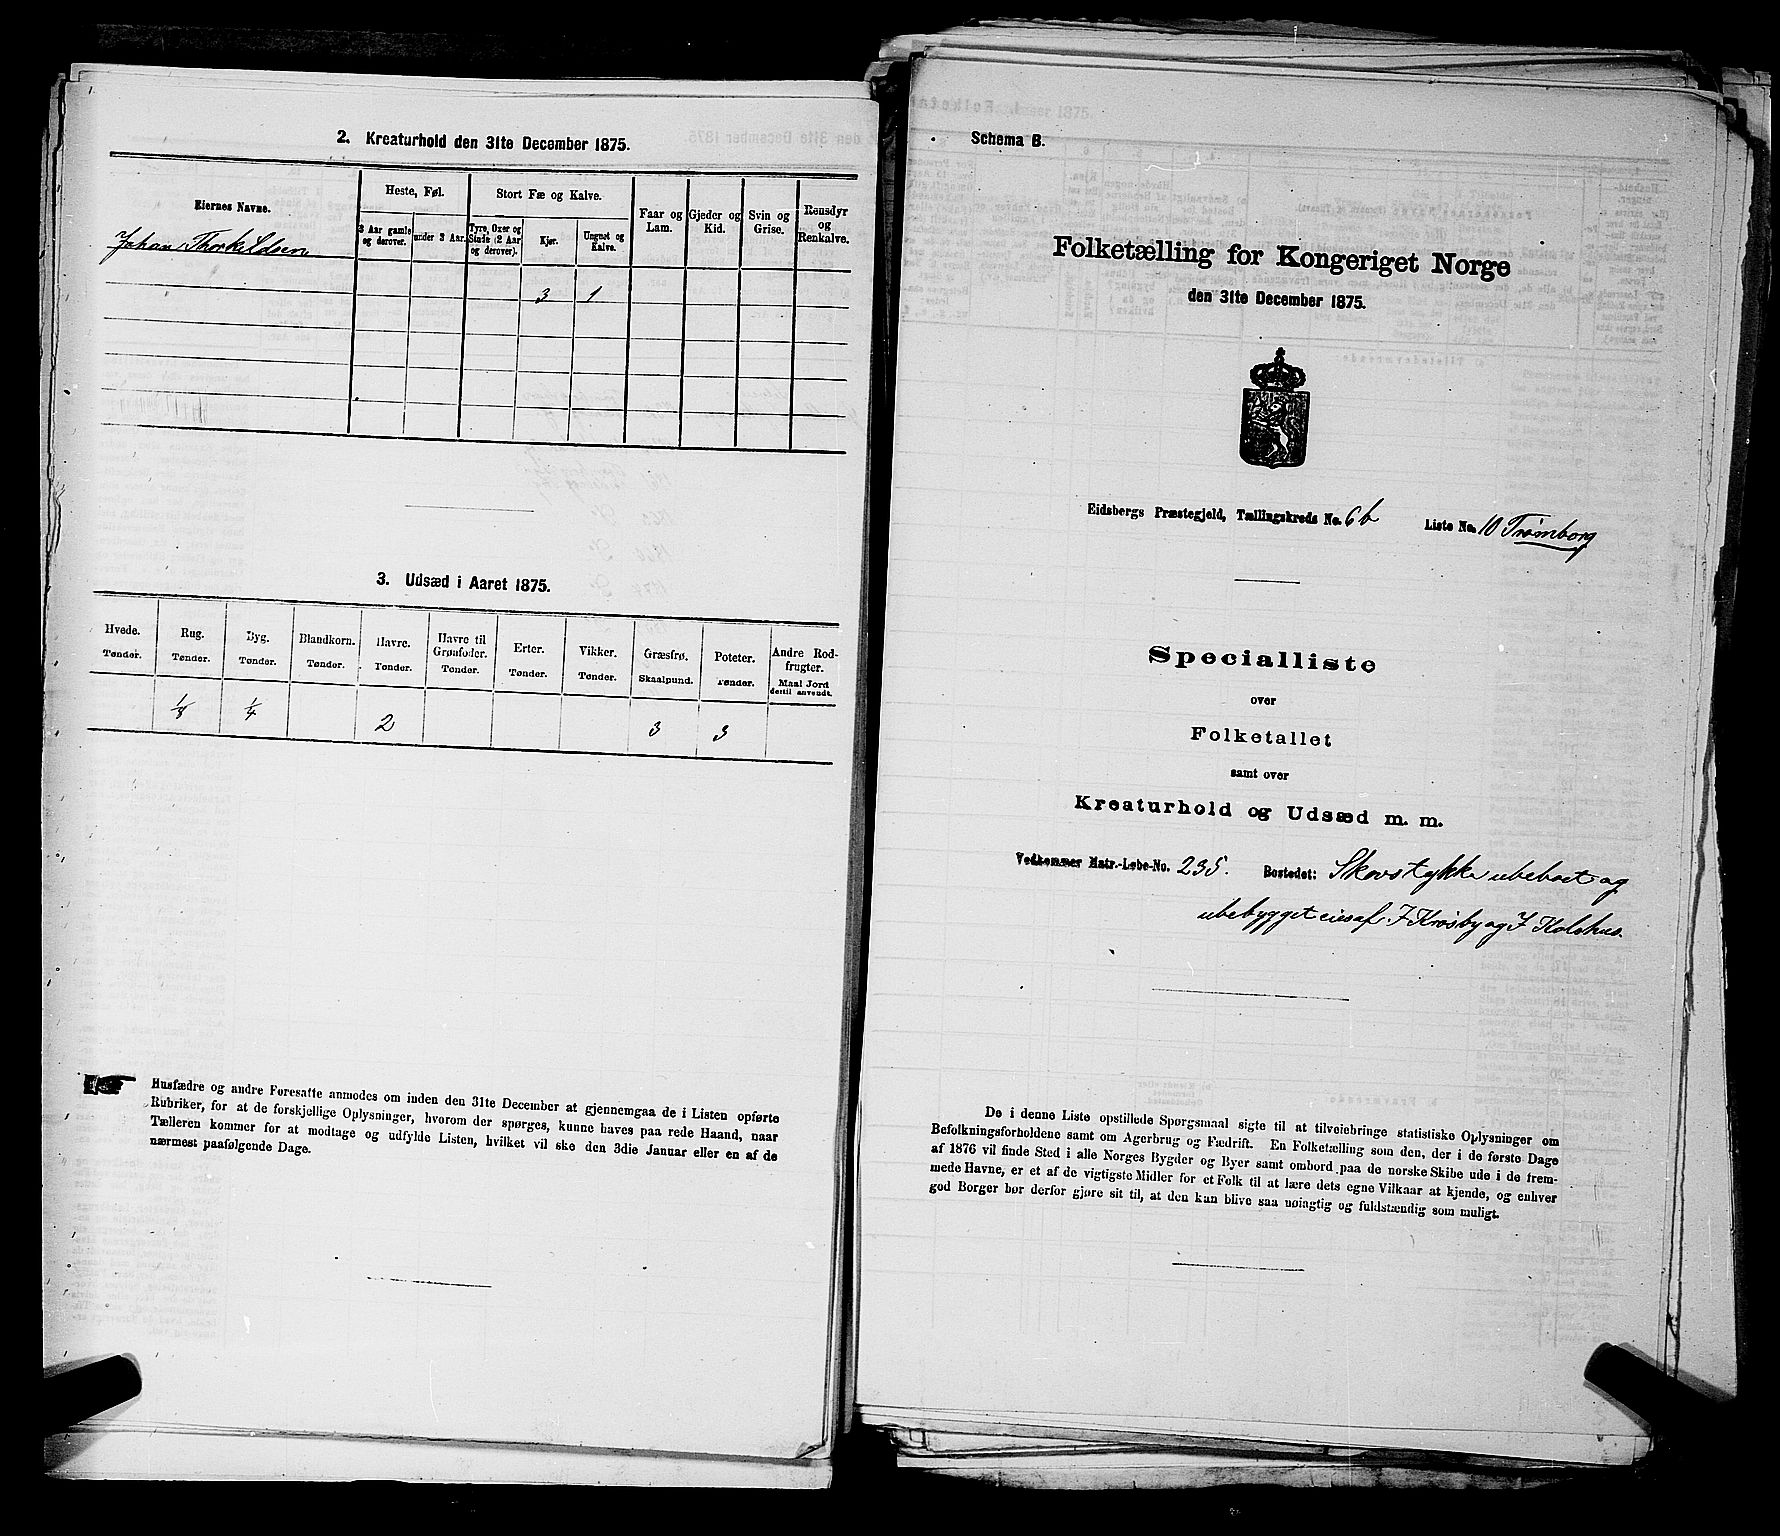 2. Kreaturhold den 31te December 1875.
Eiernes Navne.
Heste, Føl.
3 Aar gamle og derover.
under 3 Aar.
Stort Fæ og Kalve.
Tyre, Oxer og Stude (2 Aar og derover).
Kjør.
Ungnøt og Kalve.
Faar og Lam.
Gjeder og Kid.
Svin og Grise.
Rensdyr og Renkalve.
Johan Thorkildsen
3 1
3. Udsæd i Aaret 1875.
Hvede. Rug. Byg. Blandkorn. Havre. Havre til Grønfoder. Erter. Vikker. Græsfrø. Poteter. Andre Rodfrugter.
Tønder. Tønder. Tønder. Tønder. Tønder. Tønder. Tønder. Tønder. Skaalpund. Tønder. Maal Jord dertil anvendt.
1/8 1/4 2 3 3
Husfædre og andre Foresatte anmodes om inden den 31te December at gjennemgaa de i Listen opførte
Rubriker, for at de forskjellige Oplysninger, hvorom der spørges, kunne haves paa rede Haand, naar
Tælleren kommer for at modtage og udfylde Listen, hvilket vil ske den 3die Januar eller en af de
nærmest paafølgende Dage.
Schema B.
Folketælling for Kongeriget Norge
den 31te December 1875.
Eidsbergs Præstegjeld, Tællingskreds No. 6b Liste No. 10 Trømborg
Specialliste
over
Folketallet
samt over
Kreaturhold og Udsæd m. m.
Vedkommer Matr.-Løbe-No. 235. Bostedet: Skovstykke ubeboet og
ubebygget eies af J Krosby og J Kolshus.
De i denne Liste opstillede Spørgsmaal sigte til at tilveiebringe statistiske Oplysninger om
Befolkningsforholdene samt om Agerbrug og Fædrift. En Folketælling som den, der i de første Dage
af 1876 vil finde Sted i alle Norges Bygder og Byer samt ombord paa de norske Skibe ude i de frem-
mede Havne, er et af de vigtigste Midler for et Folk til at lære dets egne Vilkaar at kjende, og enhver
god Borger bør derfor gjøre sit til, at den kan blive saa nøiagtig og fuldstændig som muligt.